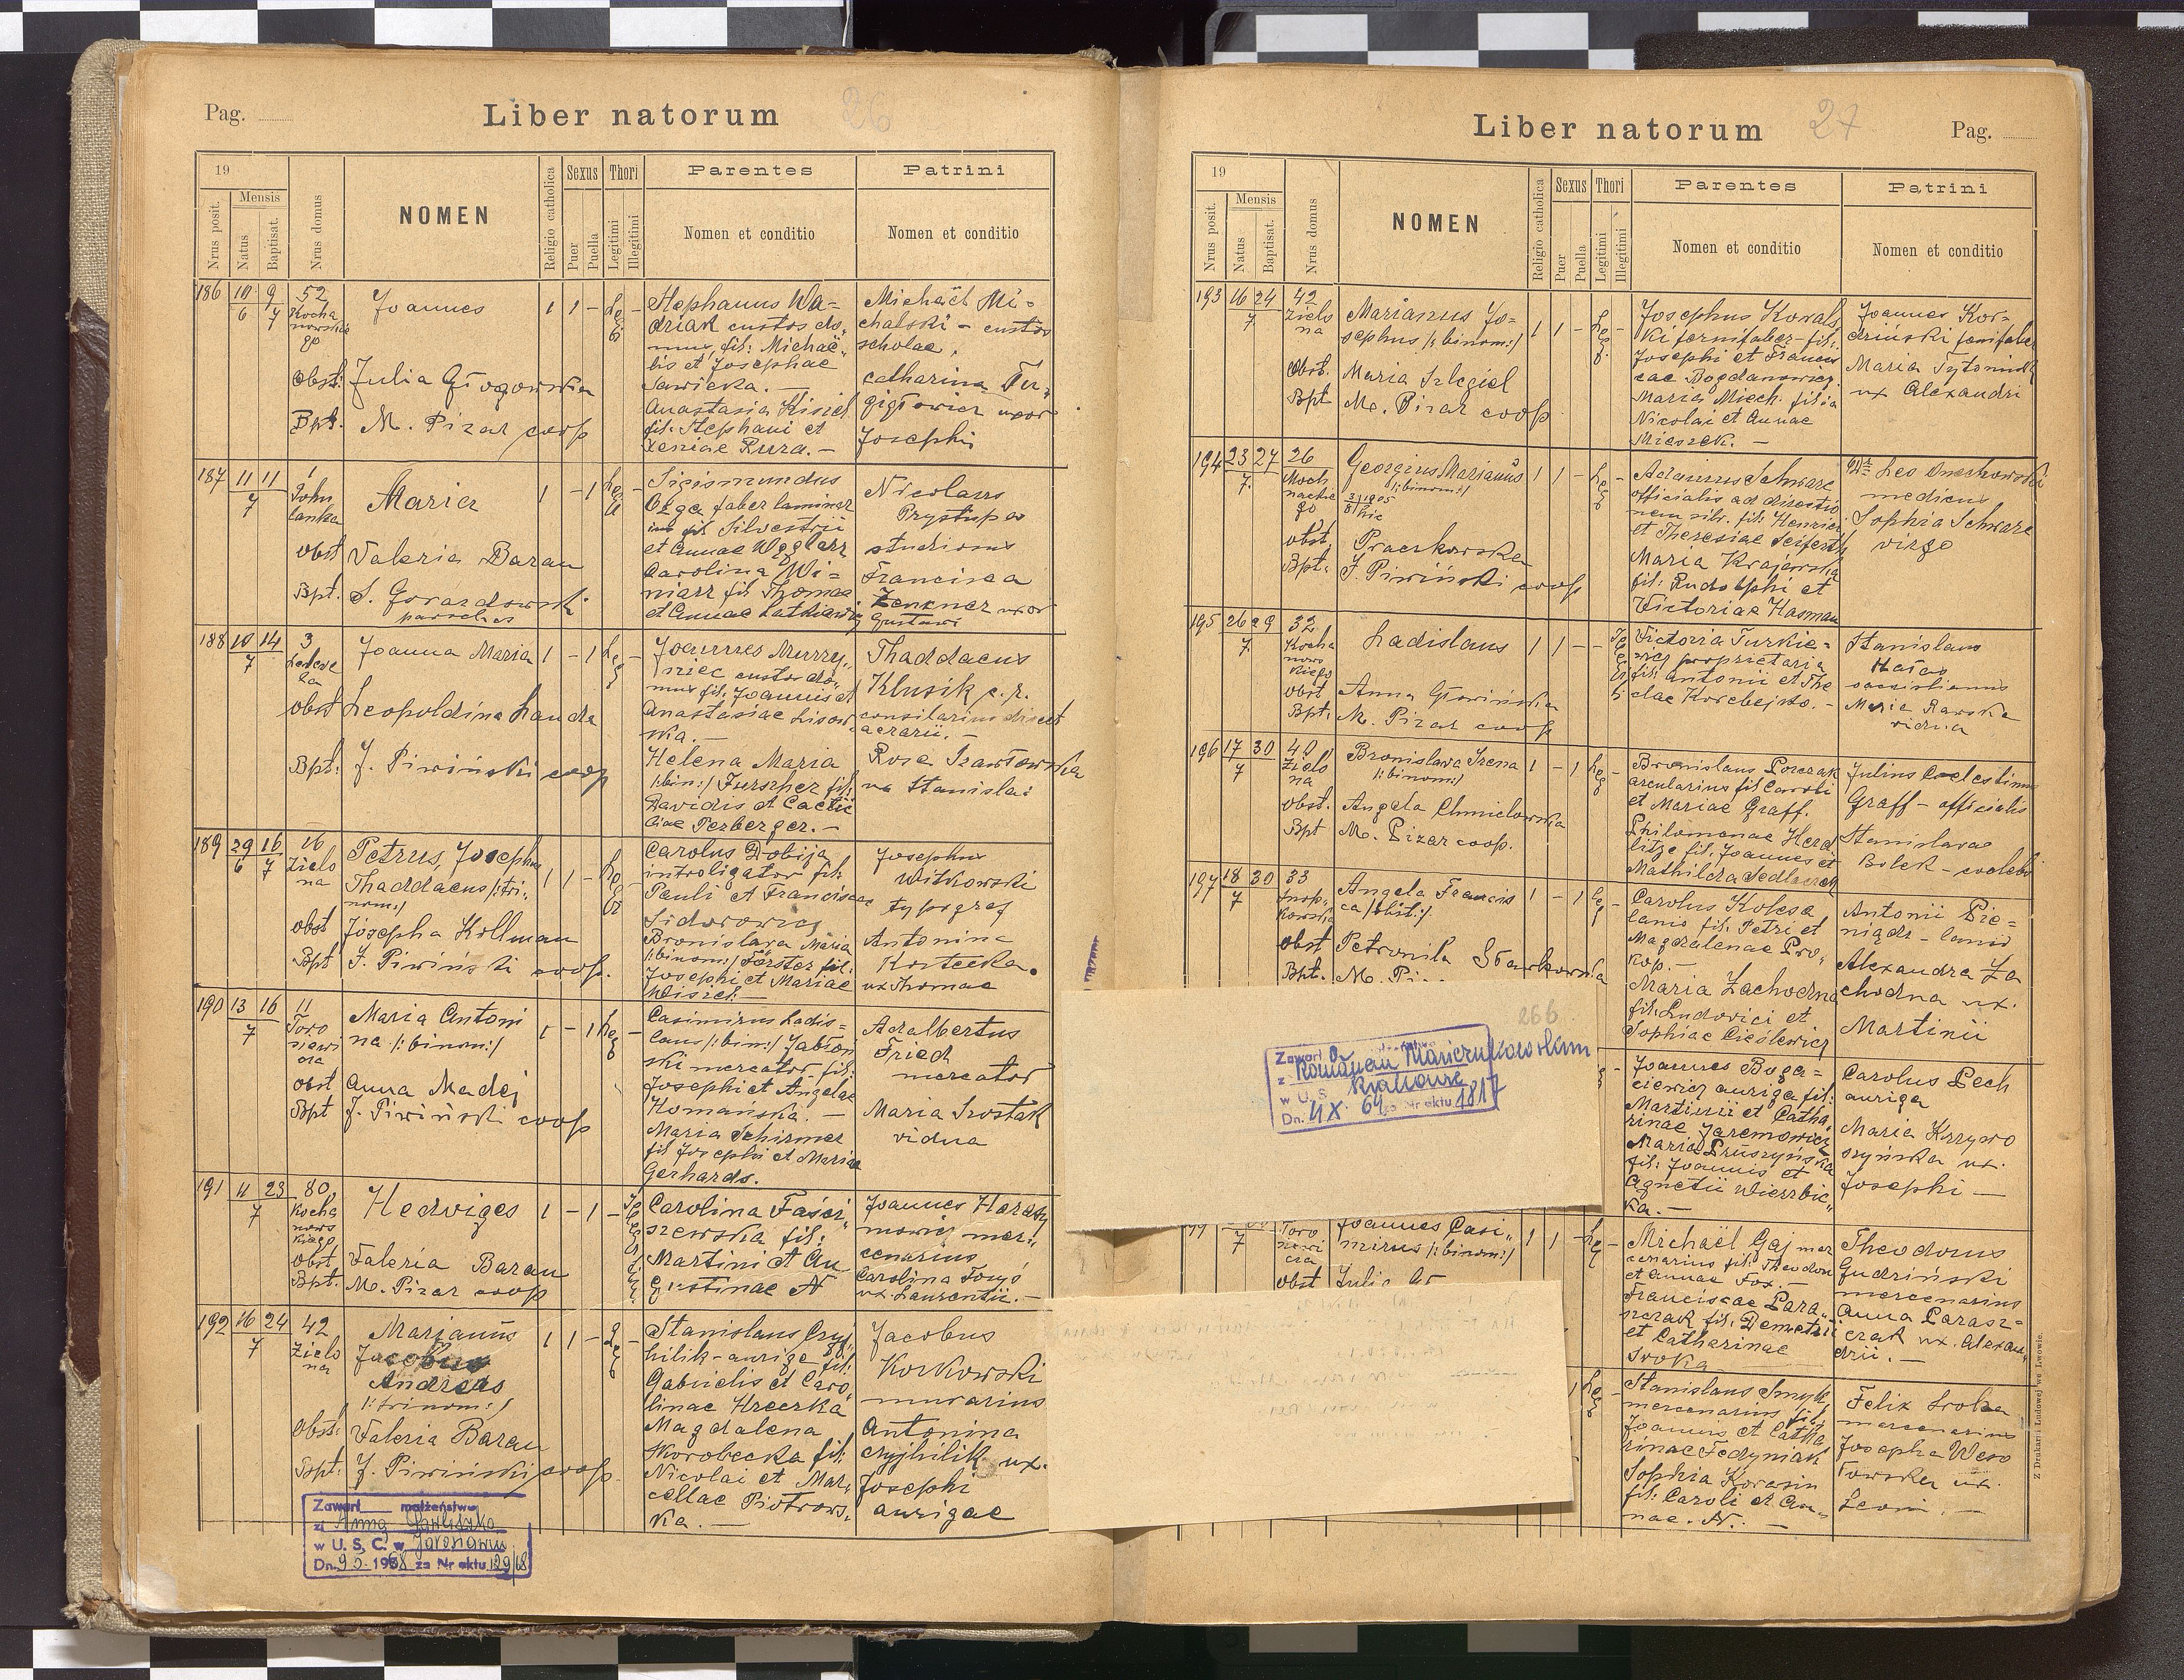 Pag.
Liber natorum
26
19
Nrus posit.
Mensis
Natus
Baptisat.
Nrus domus
NOMEN
Religio catholica
Sexus
Puer
Puella
Thori
Legitimi
Illegitimi
Parentes
Nomen et conditio
Patrini
Nomen et conditio
186
10 9
6 7
52
Kocha
nowskie
go
Joannes
1 1 -
Obst: Julia Głogowska
Bpt. M. Pizar coop
Stephanus Wa-
driak custos do-
mus, fil: Michaë-
lis et Josephae
Sawicka. —
Anastasia Kisiel
fil: Stephani et
Xeniae Rura. —
Michaël Mi-
chalski - custos
scholae,
Catharina Tu-
uxor
Josephi
187
11 11
7
1
Maria
1 - 1
obst Valeria Baran
Bpt. S. Gorazdowski
parochus
Sigismundus
Ozga faber laminar
fil Silvestrii
et Annae Węglarz
Carolina Wi-
niarz fil Thomae
et Annae
Nicolaus
Prystupa
studiosus
Francisca
Zenkner uxor
Gustavi
188
10 14
7
3
Lelewe
la
Joanna Maria
1 - 1
obst Leopoldina Landa
Bpt: J. Piwiński coop
Joannes Murzy-
niec custos do-
mus fil. Joannis et
Anastasiae Lisow
ska. —
Helena Maria
/:bin:/ Furscher fil:
Davidis et Caeci
liae Perberger. —
Thaddaeus
Klusik c. r.
consiliarius
aerarii. —
Rosa Szawłowska
ux Stanislai
189
29 16
6 7
16
Zielo
na
Petrus, Josephus
Thaddaeus /:tri-
nom:/
1 1 -
obst Josepha Kollman
Bpt J. Piwiński coop.
Carolus Dobija
introligator fil:
Pauli et Franciscae
Sidorowicz
Bronislava Maria
/:binom:/ Förster fil:
Josephi et Mariae
Josephus
Witkowski
typograf
Antonina
Kostecka.
ux Thomae
190
13 16
7
11
Toro
siewi
cza
Maria Antoni
na /:binom:/
1 - 1
obst Anna Madej
Bpt J. Piwiński coop
Casimirus Ladis-
laus /:bin:/ Jabłoń
ski mercator fil:
Josephi et Angelae
Homańska. —
Maria Schirmer
fil Josephi et Mariae
Gerhards.
Adalbertus
Fried
mercator
Maria Szostak
vidua
191
11 23
7
80
Kocha
nows
kiego
Hedviges
1 - 1 -
obst Valeria Baran
Bpt. M. Pizar coop
Carolina Faści-
szewska fil:
Martini et Au
gustinae N
Joannes Harasy
mowicz mer-
cenarius
Carolina
ux. Laurentii. —
192
16 24
7
42
Zielo
na
Marjanus
Jacobus
Andreas
/:trinom:/
1 1 -
Obst: Valeria Baran
Bpt: J. Piwiński coop.
Stanislaus Czyj-
hilik - auriga fil:
Gabrielis et Caro-
linae Hreczka
Magdalena
Skorobecka fil:
Nicolai et Mar-
cellae Piotrows-
ka. —
Jacobus
Korkowski
murarius
Antonina
Czyjhilik ux.
Josephi
aurigae
Zawarł małżeństwo
z Anną
w U. S. C. w Jarosławiu
Dn. 9.5. 1968 za Nr aktu 129/68
Liber natorum
27
Pag.
19
Nrus posit.
Mensis
Natus
Baptisat.
Nrus domus
NOMEN
Religio catholica
Sexus
Puer
Puella
Thori
Legitimi
Illegitimi
Parentes
Nomen et conditio
Patrini
Nomen et conditio
193
16 24
7
42
Zielo
na
Marianus Jo-
sephus /:binom:/
1 1 -
Obst. Maria Szlegiel
Bpt M. Pizar coop
Josephus Kowals
ki fernifaber - fil:
Josephi et Francis
cae Bogdanowicz.
Maria Miech. filia
Nicolai et Annae
Mieszek. —
Joannes Kor-
Maria
ux Alexandri
194
23 27
7
26
Moch
nackie
go
Georgius Marjanus
/:binom:/
1 1 -
obst. Praczkowska
Bpt. J. Piwiński coop
Adamus Schwarz
officialis ad directio
nem fil: Henrici
et Theresiae Seiferth
Maria Krajewska
fil: Rudolphi et
Victoriae Hasman
Dr Leo
medicus
Sophia Schwarz
virgo
195
26 29
7
32
Kocha
nows
kiego
Ladislaus
1 1 - -
obst Anna
Bpt. M. Pizar coop
Victoria Turkie-
wicz proprietaria
fil: Antonii et The
clae Korebejko. —
Stanislaus
Hałas
Maria Rawska
vidua
196
17 30
7
40
Zielo
na
Bronislava Irena
/:binom:/
1 - 1
obst. Angela Chmielowska
Bpt M. Pizar coop.
Bronislaus Porczak
arcularius fil Caroli
et Mariae Graff.
Philomenae Herd
litze fil. Joannes et
Mathilda Sedlaczek
Julius Coelestinus
Graff - officialis
Stanislava
Bolek - coelebs
197
18 30
7
33
Snop-
kowska
Angela Francis
ca
1 - 1
Obst Petronila Starkowska
Bpt. M. Pi
Carolus Kolesa
lanio fil. Petri et
Magdalenae Pro-
kop. —
Maria Zachodna
fil: Ludovici et
Sophiae Cieślewicz
Antonii Pie-
niądz - lanio
Alexandra Za
chodna ux.
Martinii
266
Zawarł
z Romanem
w U.S. Krakowie
Dn. 4 X. 64 za Nr aktu 1817
Joannes Boga-
ciewicz auriga fil:
Martini et Catha-
rinae Jaremowicz
Maria Pruszyńska
fil: Joannis et
Agnetis Wierzbic-
ka. —
Carolus Pech
auriga
Maria Krzywo
szyńska ux.
Josephi —
7
Toro
siewi
cza
Joannes Casi-
mirus /:binom:/
1 1 -
obst Julia
Michaël Gaj mer
cenarius fil: Theodori
et Annae Fox. —
Franciscae Para-
szczak fil. Demetrii
et Catharinae
Sroka
Theodorus
Gudziński
mercenarius
Anna Parasz-
czak ux. Alexan-
drii. —
Stanislaus Smyk
mercenarius fil:
Joannis et Catha
rinae Fedyniak
Sophia Korasin
fil: Caroli et An-
nae. N. —
Felix Sroka
mercenarius
Josepha Weso
łowska ux.
Leoni. —
Z Drukarni Ludowej we Lwowie.